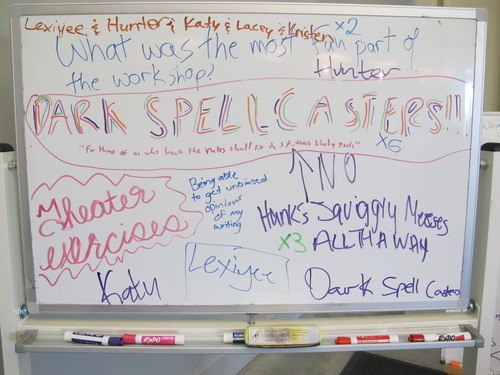 Lexiyee & Hunter & Katy & Lacey & Kristen x2
What was the most fun part of
the workshop?
Hunter
DARK SPELL CASTERS!!!
"For those of us who break the rules shall die in
x6
NO
Theater
exercises
Being able
to get unbiased
opinions
of my
writing
Hank's Squiggly Messes
x3 ALL THA WAY
Katy
Lexiyee
Dark Spell Casters
EXPO
EXPO
EXPO